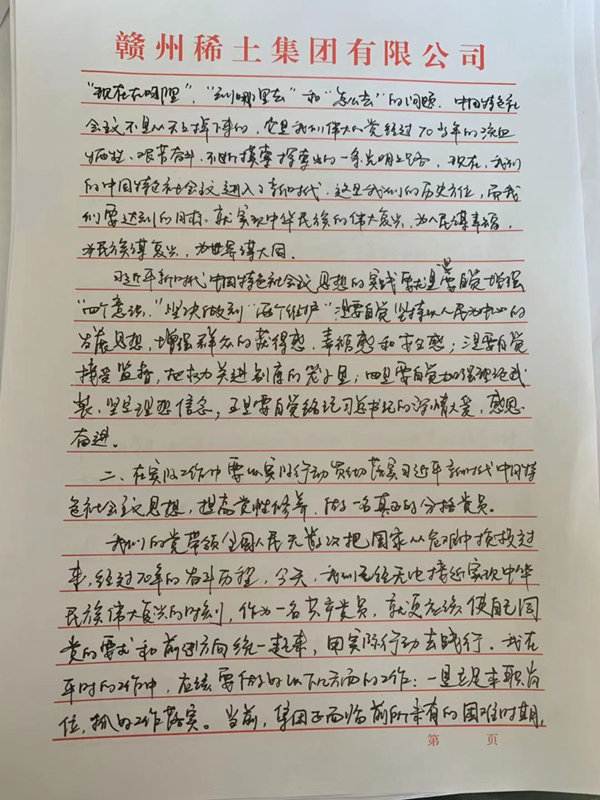 赣州稀土集团有限公司
“现在在哪里”,“到哪里去”和“怎么去”的问题.中国特色社
会主义不是从天上掉下来的,它是我们伟大的党经过70多年的流血
牺牲、艰苦奋斗、不断摸索探索出的一条光明之路,现在,我们
的中国特色社会主义进入了新时代,这是我们的历史方位,而我
们要达到的目标,就实现中华民族的伟大复兴,为人民谋幸福,
为民族谋复兴,为世界谋大同。
习近平新时代中国特色社会主义思想的实践要求是一是要自觉增强
“四个意识”,坚决做到“两个维护”二是要自觉坚持以人民为中心的
发展思想,增强群众的获得感、幸福感和安全感;三是要自觉
接受监督,把权力关进制度的笼子里;四是要自觉加强理论武
装、坚定理想信念,五是要自觉铭记习总书记的深情大爱,感恩
奋进。
二、在实际工作中要以实际行动贯彻落实习近平新时代中国特
色社会主义思想,提高党性修养,做一名真正的合格党员。
我们的党带领全国人民无数次把国家从危难中拯救过
来,经过70年的奋斗历程,今天,我们已经无比接近实现中华
民族伟大复兴的时刻,作为一名共产党员,就更应该使自己同
党的要求和前进方向统一起来,用实际行动去践行。我在
平时的工作中,应该要做好以下几方面的工作:一是立足本职岗
位,抓好工作落实。当前,集团正面临前所未有的困难时期,
第 页